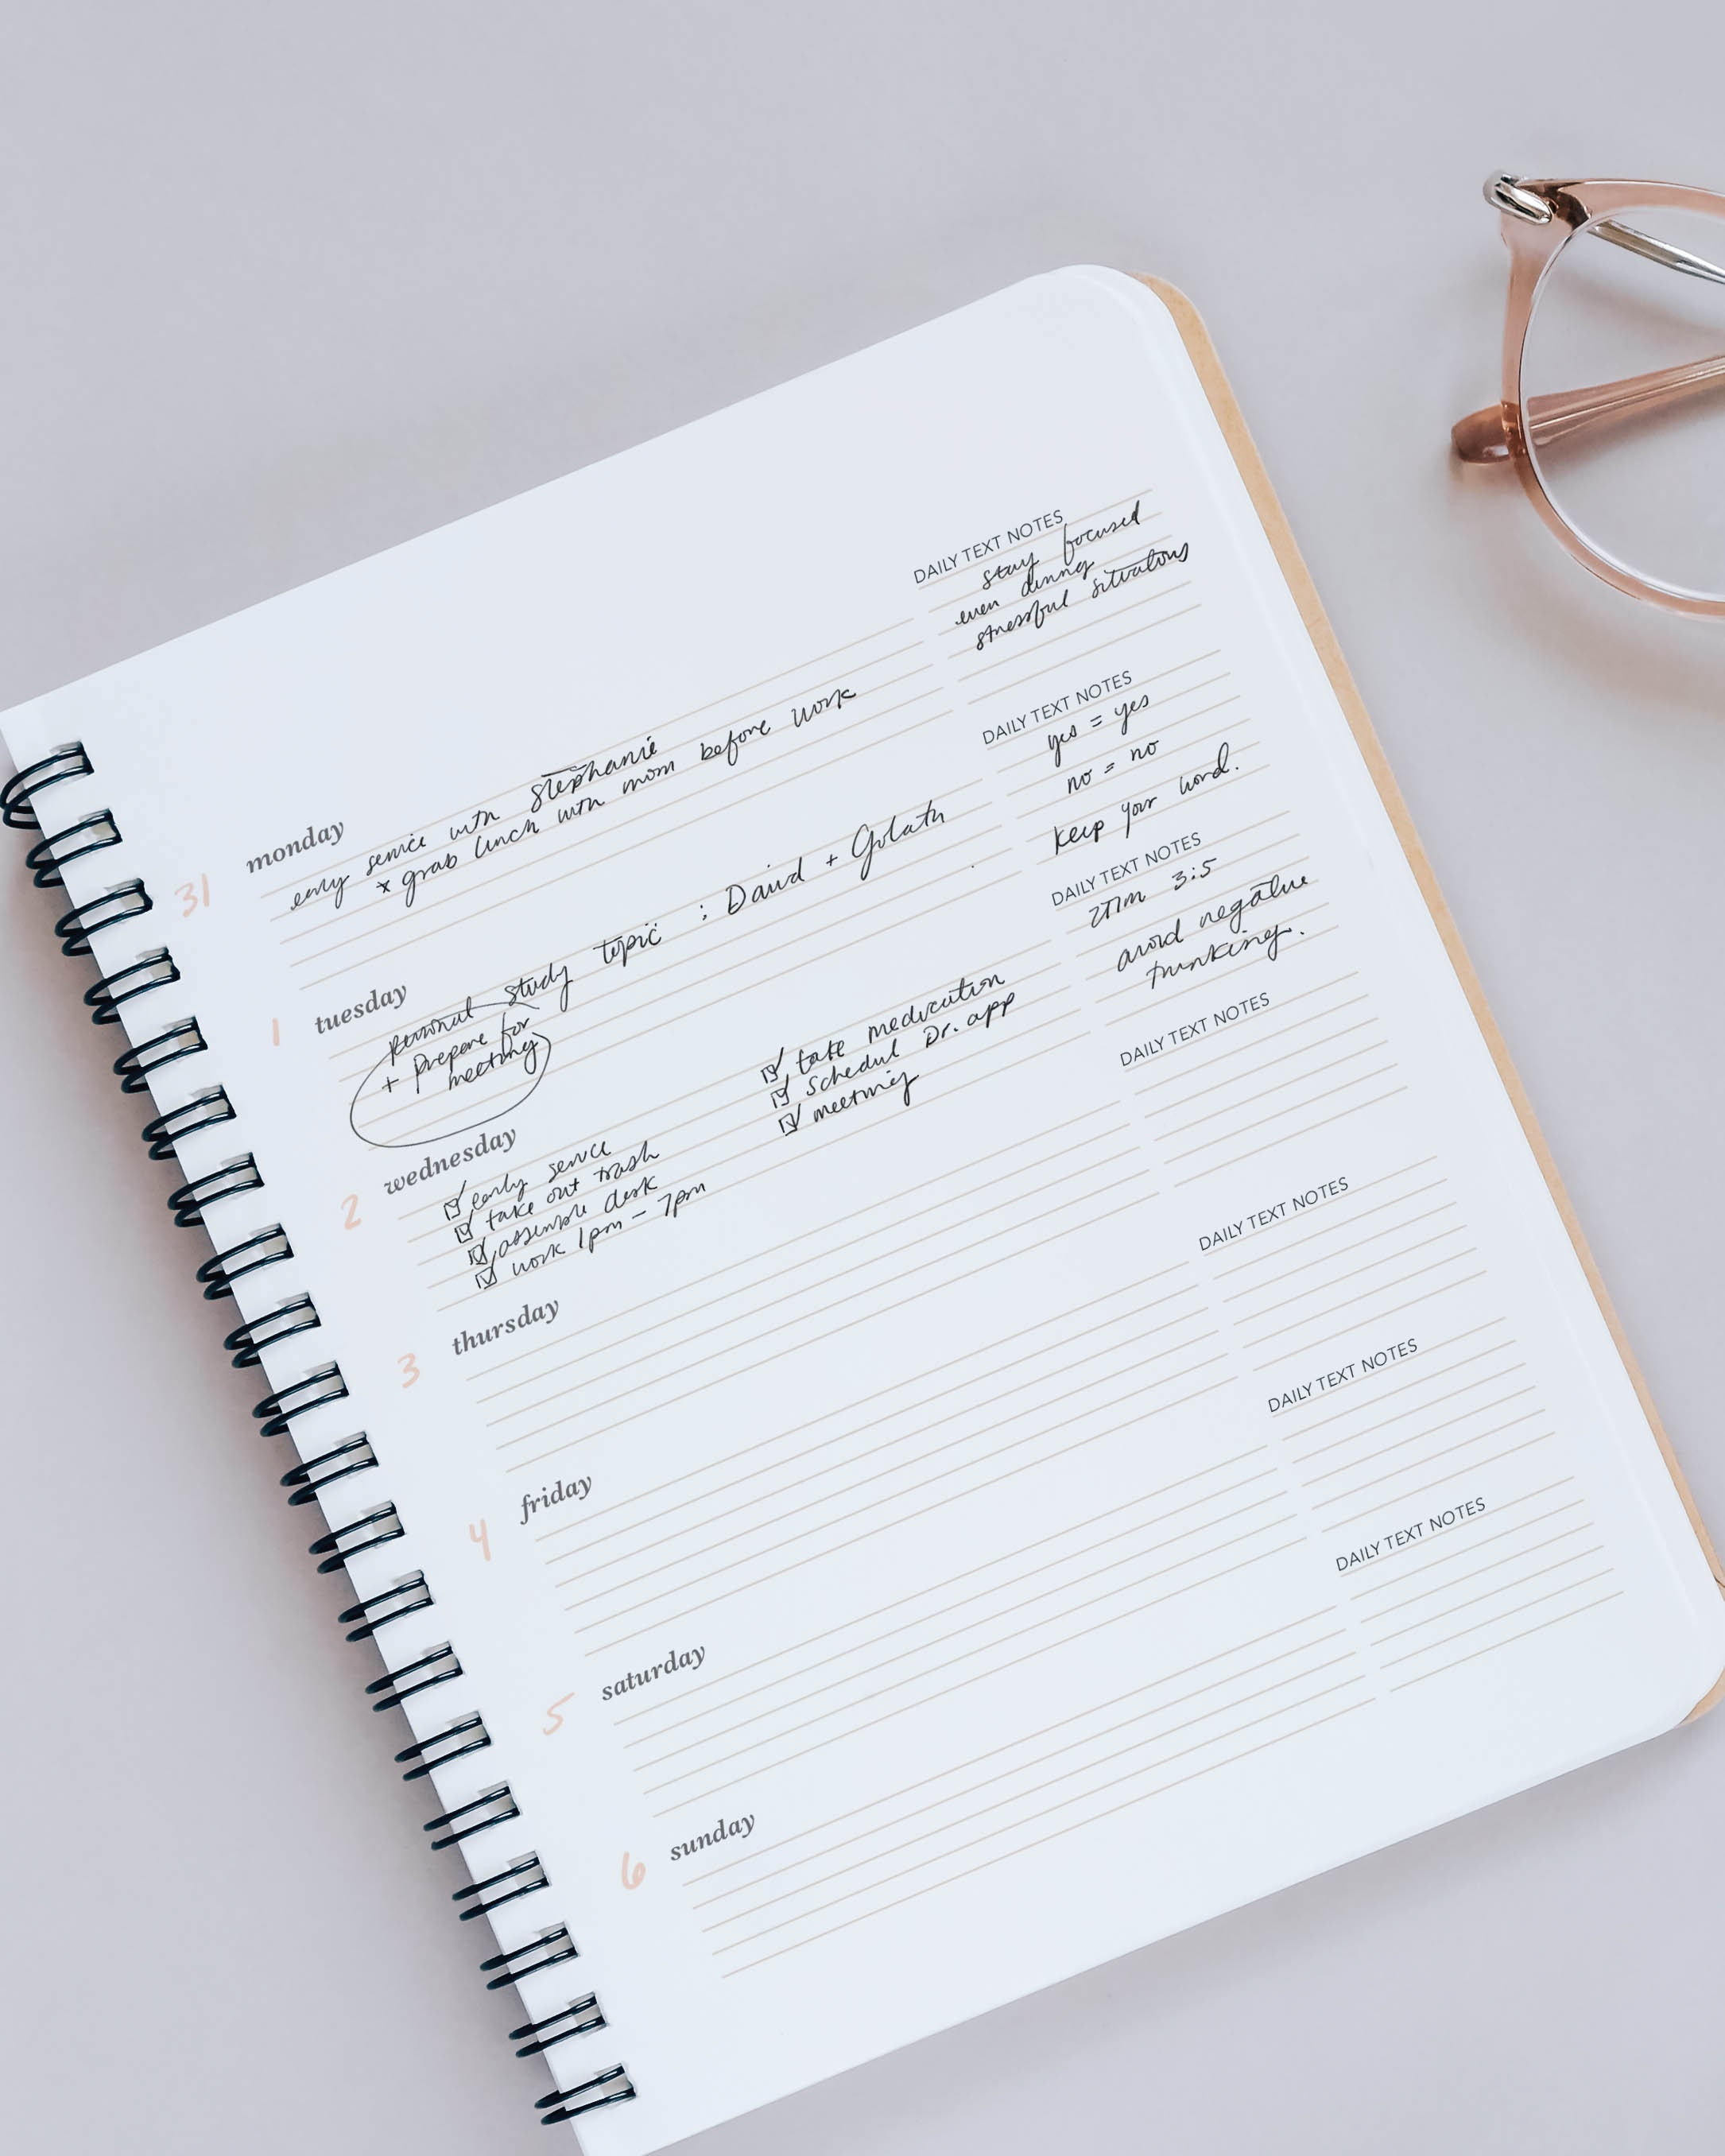 monday
31
early service with stephanie
* grab lunch with mom before work
DAILY TEXT NOTES
stay focused
even during
stressful situations
tuesday
1
personal study topic : David + Goliath
+ prepare for
meeting
DAILY TEXT NOTES
yes = yes
no = no
keep your word.
wednesday
2
☑ early service
☑ take out trash
☑ assemble desk
☑ work 1pm – 7pm
☑ take medication
☑ schedul Dr. app
☑ meeting
DAILY TEXT NOTES
2Tim 3:5
avoid negative
thinking.
thursday
3
DAILY TEXT NOTES
friday
4
DAILY TEXT NOTES
saturday
5
DAILY TEXT NOTES
sunday
6
DAILY TEXT NOTES